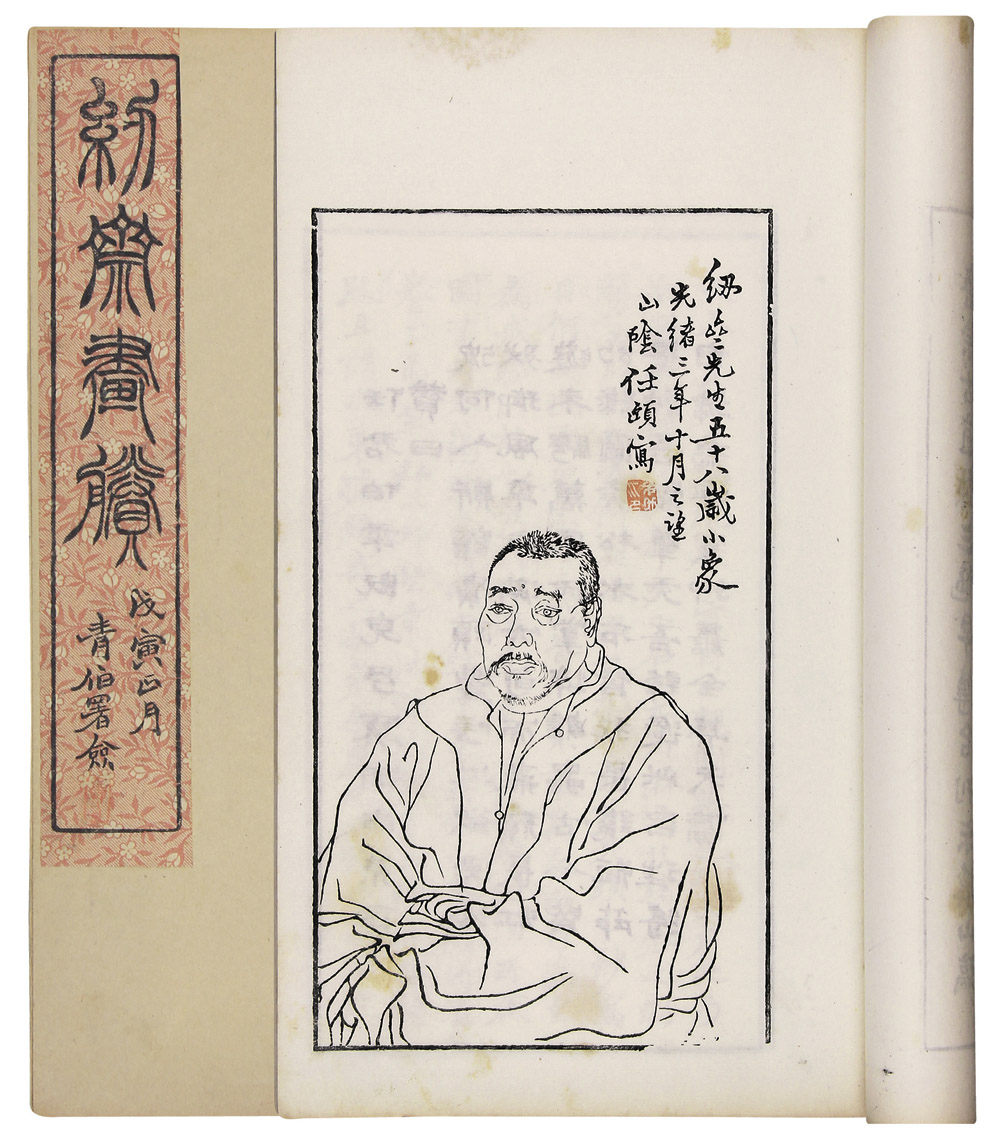 紉齋畫賸
戊寅正月
青伯署僉
紉亝先生五十八歲小象
光緒三年十月之望
山陰任頤寫